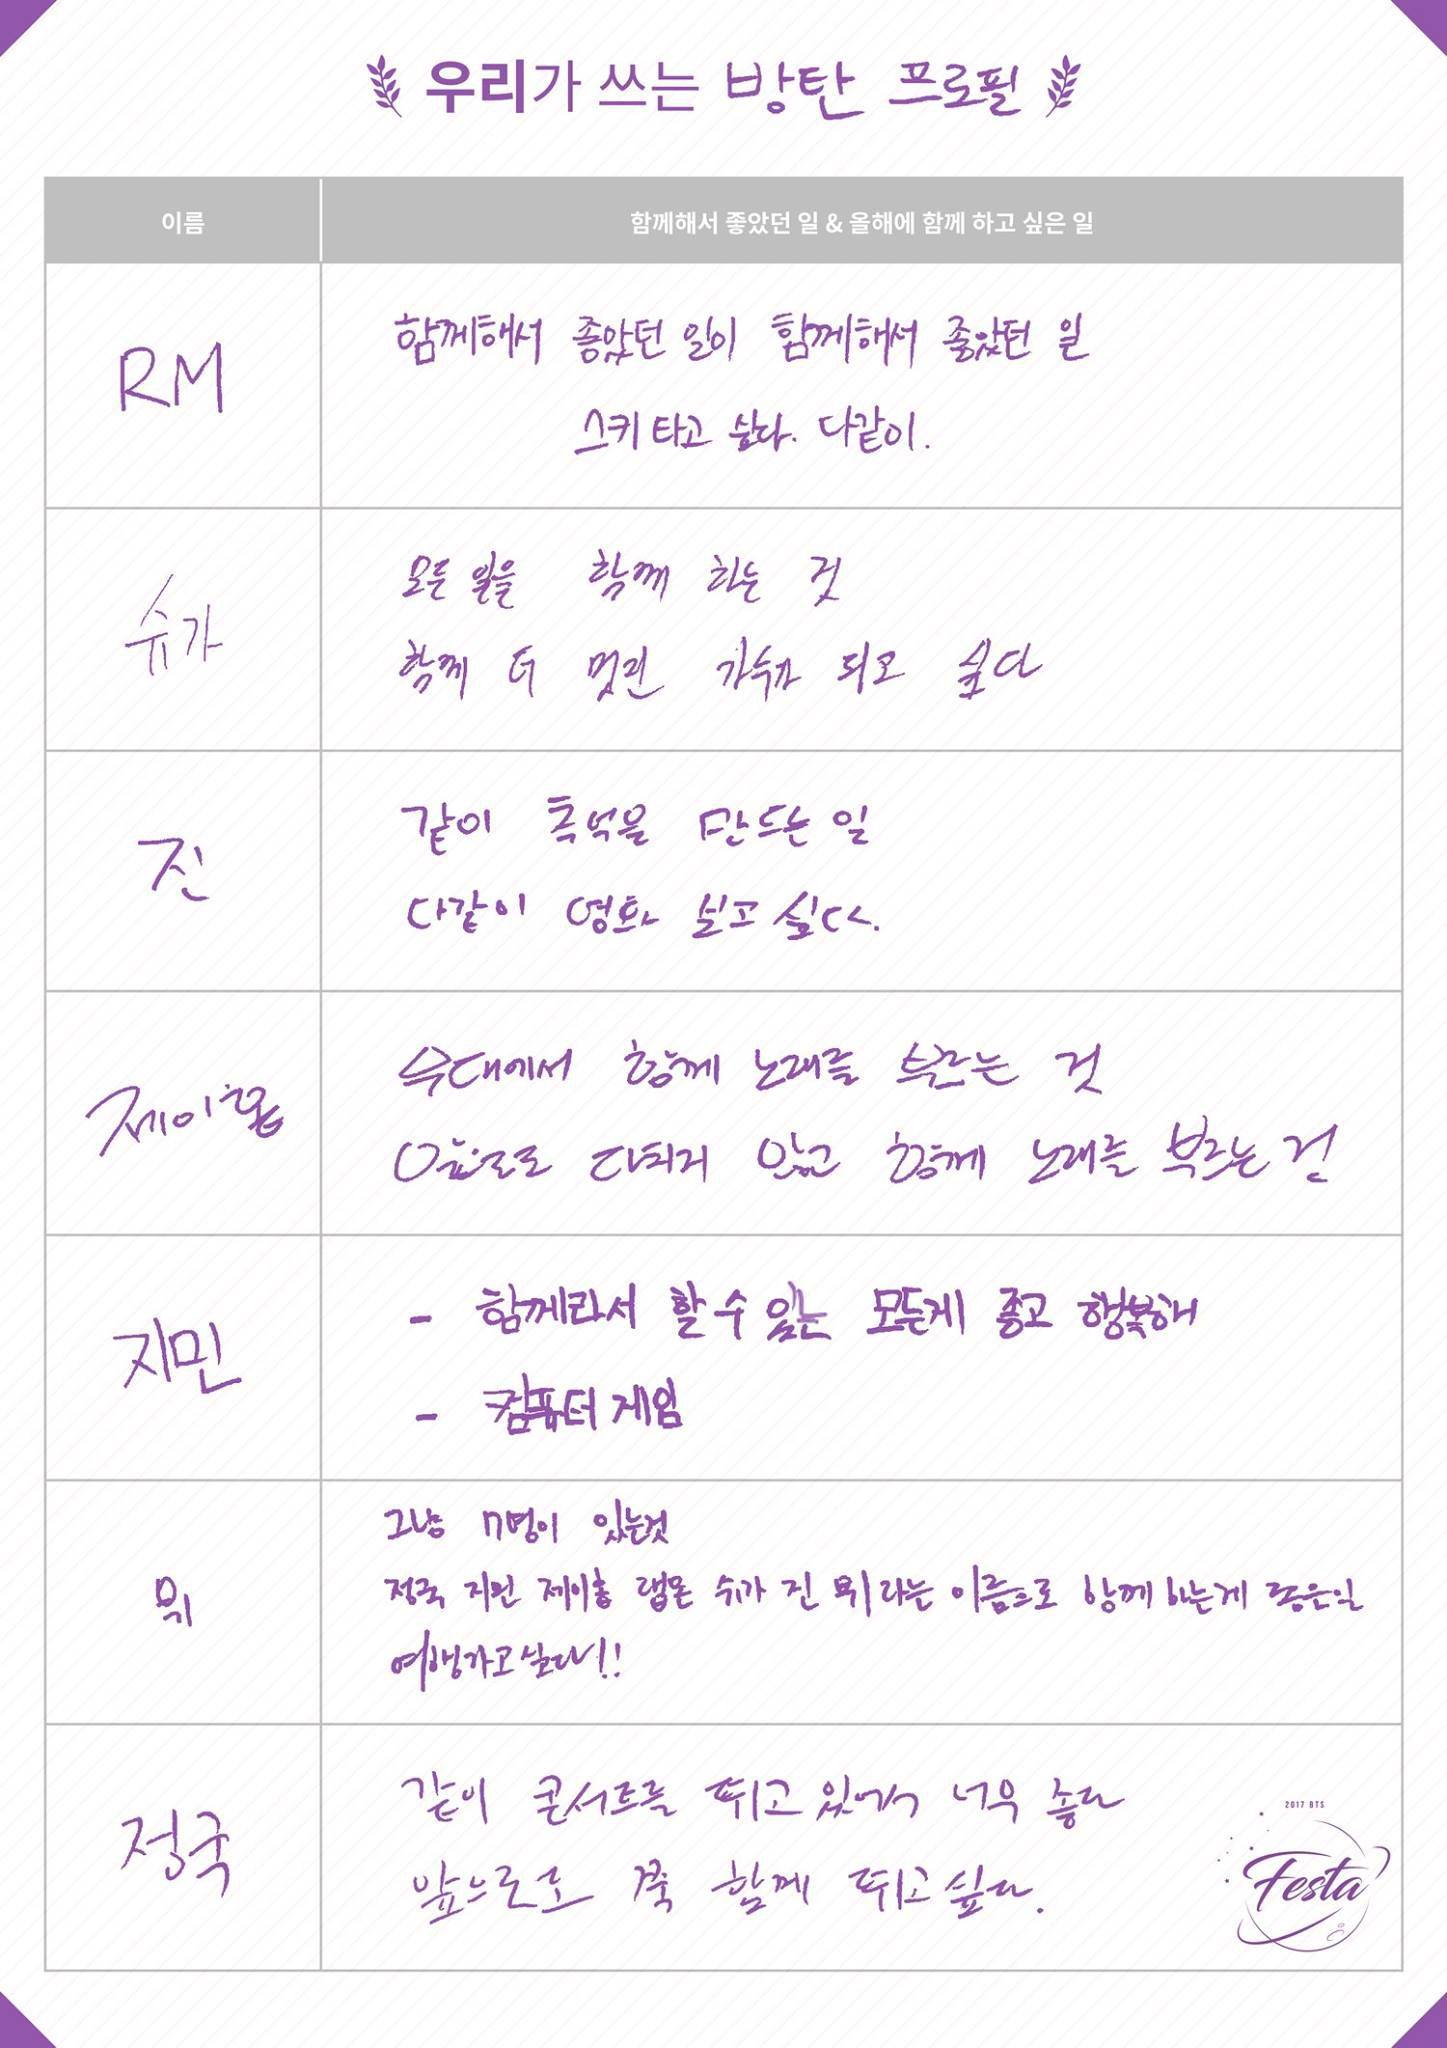 우리가 쓰는 방탄 프로필
이름
함께해서 좋았던 일 & 올해에 함께 하고 싶은 일
RM
함께해서 좋았던 일이 함께해서 좋았던 일
스키 타고 싶다. 다같이.
슈가
모든 일을 함께 하는 것
함께 더 멋진 가수가 되고 싶다
진
같이 추억을 만드는 일
다같이 영화 보고 싶다.
제이홉
무대에서 함께 노래를 부르는 것
앞으로도 다치지 않고 함께 노래를 부르는 것
지민
- 함께라서 할 수 있는 모든게 좋고 행복해
- 컴퓨터 게임
뷔
그냥 7명이 있는것
정국 지민 제이홉 랩몬 슈가 진 뷔 라는 이름으로 함께 하는게 좋은일
여행가고싶다!!
정국
같이 콘서트를 뛰고 있어서 너무 좋다
앞으로도 쭉 함께 뛰고 싶다.
2017 BTS
Festa